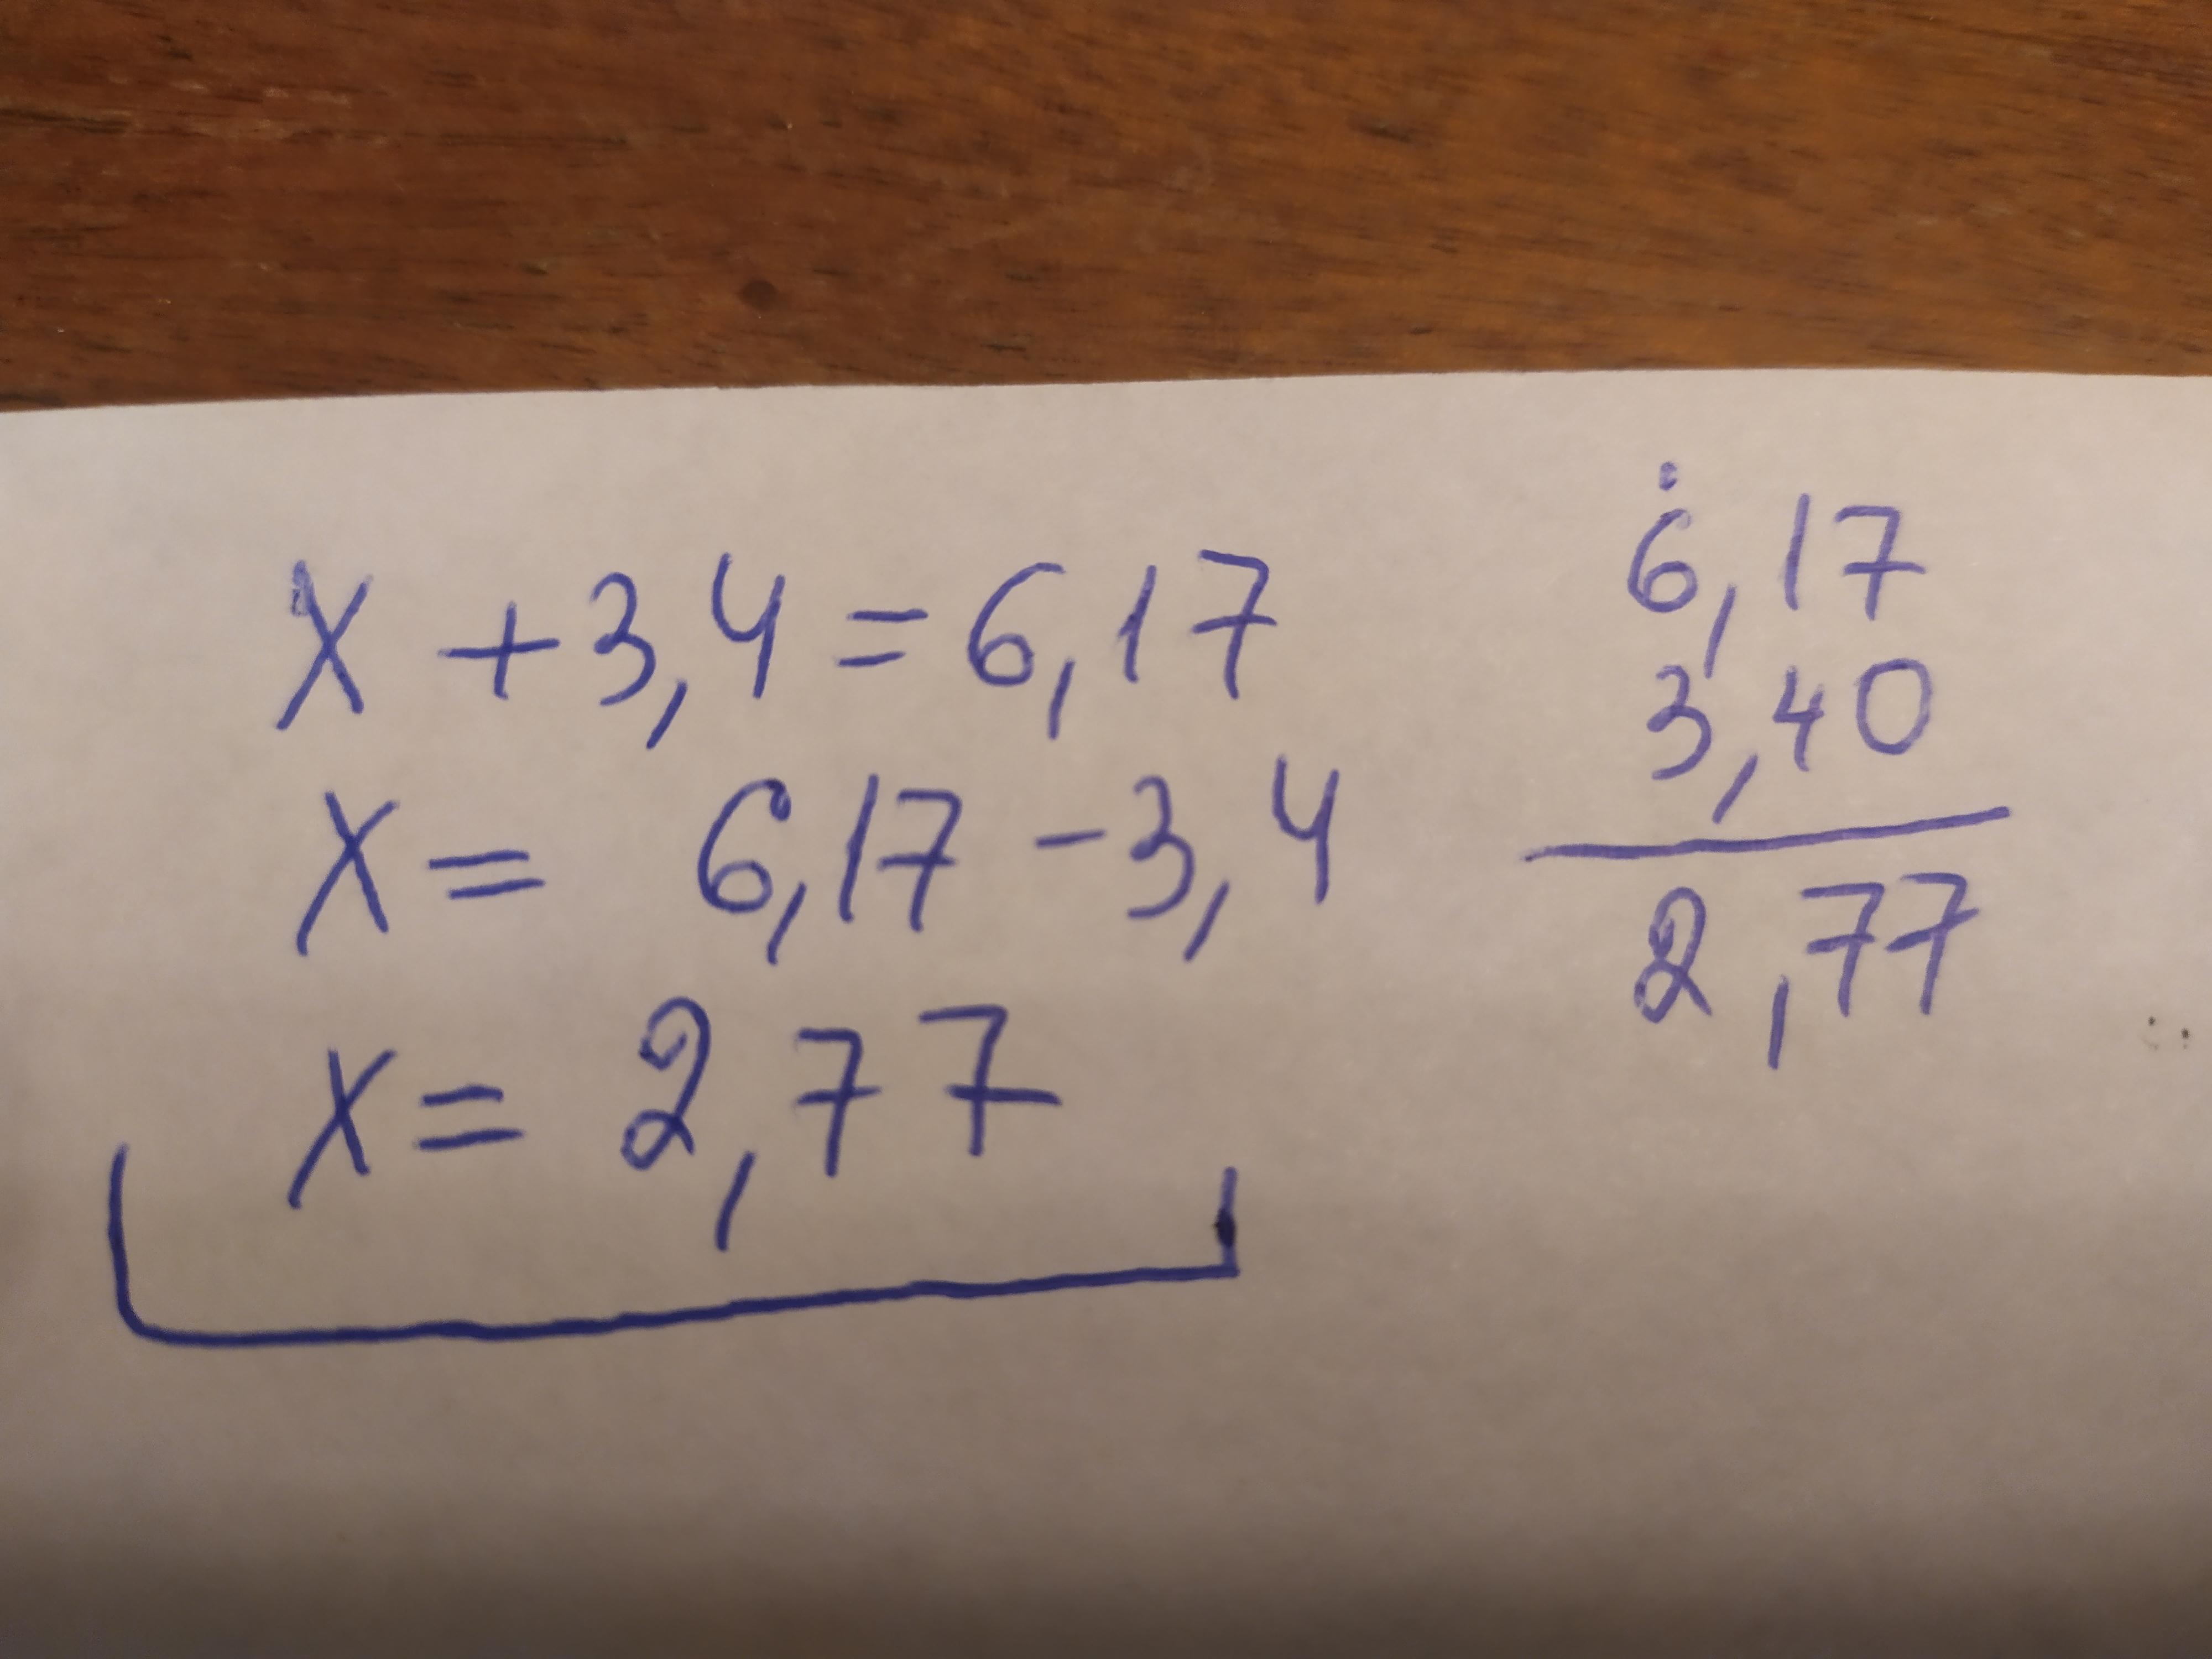 x + 3,4 = 6,17
x = 6,17 - 3,4
x = 2,77
6,17
3,40
2,77